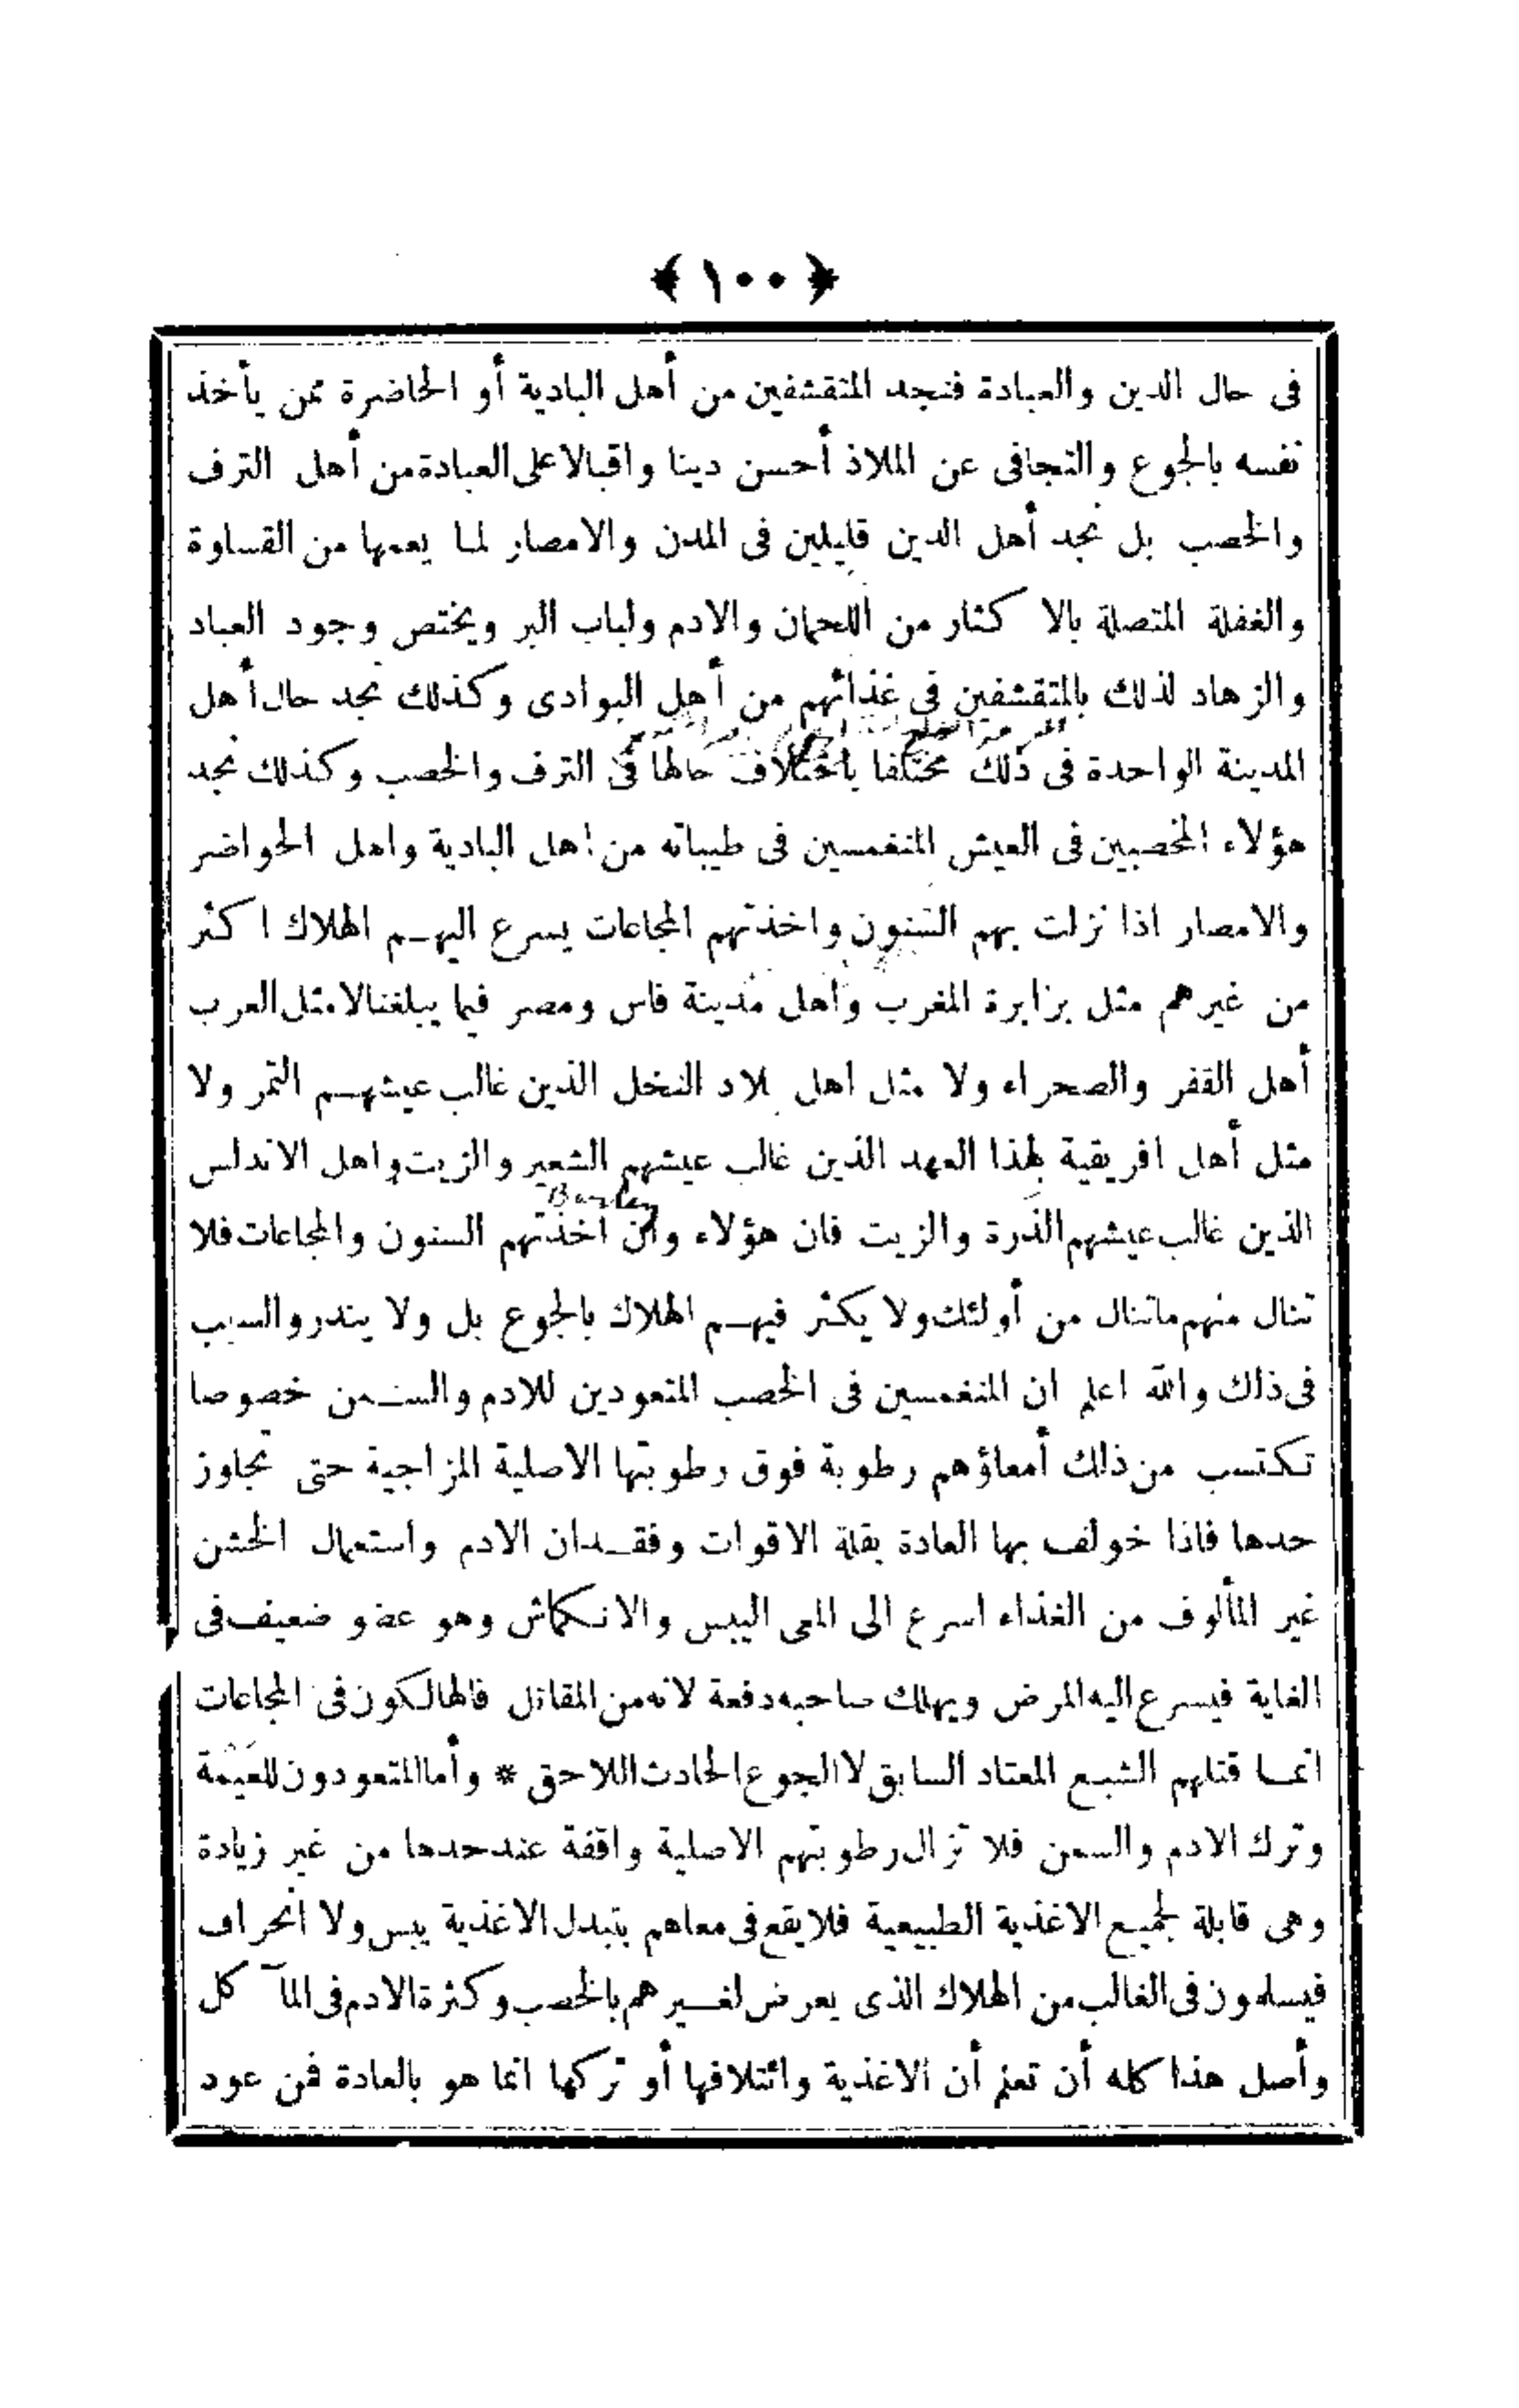 ﴿ ١٠٠ ﴾
فى حال الدين والعبادة فنجد المتقشفين من أهل البادية أو الحاضرة ممن يأخذ
نفسه بالجوع والتجافى عن الملاذ أحسن دينا واقبالا على العبادة من أهل الترف
والخصب بل نجد أهل الدين قليلين فى المدن والامصار لما يعمها من القساوة
والغفلة المتصلة بالا كثار من اللحمان والادم ولباب البر ويختص وجود العباد
والزهاد لذلك بالمتقشفين فى غذائهم من أهل البوادى وكذلك نجد حال أهل
المدينة الواحدة فى ذلك مختلفا باختلاف حالها فى الترف والخصب وكذلك نجد
هؤلاء المخصبين فى العيش المنغمسين فى طيباته من اهل البادية واهل الحواضر
والامصار اذا نزلت بهم السنون واخذتهم المجاعات يسرع اليهم الهلاك اكثر
من غيرهم مثل برابرة المغرب وأهل مدينة فاس ومصر فيما يبلغنا لا مثل العرب
أهل القفر والصحراء ولا مثل اهل بلاد النخل الذين غالب عيشهم التمر ولا
مثل أهل افريقية لهذا العهد الذين غالب عيشهم الشعير والزيت واهل الاندلس
Barley
الذين غالب عيشهم الذرة والزيت فان هؤلاء وان اخذتهم السنون والمجاعات فلا
تنال منهم ماتنال من أولئك ولا يكثر فيهم الهلاك بالجوع بل ولا يندر والسبب
فى ذلك والله اعلم ان المنغمسين فى الخصب المتعودين للادم والسمن خصوصا
تكتسب من ذلك أمعاؤهم رطوبة فوق رطوبتها الاصلية المزاجية حتى تجاوز
حدها فاذا خولف بها العادة بقلة الاقوات وفقدان الادم واستعمال الخشن
غير المألوف من الغذاء اسرع الى المعى اليبس والانكماش وهو عضو ضعيف فى
الغاية فيسرع اليه المرض ويهلك صاحبه دفعة لانه من المقاتل فالهالكون فى المجاعات
انما قتلهم الشبع المعتاد السابق لا الجوع الحادث اللاحق * وأما المتعودون للعيمة
وترك الادم والسمن فلا تزال رطوبتهم الاصلية واقفة عند حدها من غير زيادة
وهى قابلة لجميع الاغذية الطبيعية فلا يقع فى معاهم بتبدل الاغذية يبس ولا انحراف
فيسلمون فى الغالب من الهلاك الذى يعرض لغيرهم بالخصب وكثرة الادم فى المآكل
وأصل هذا كله أن تعلم أن الاغذية وائتلافها أو تركها انما هو بالعادة فمن عود